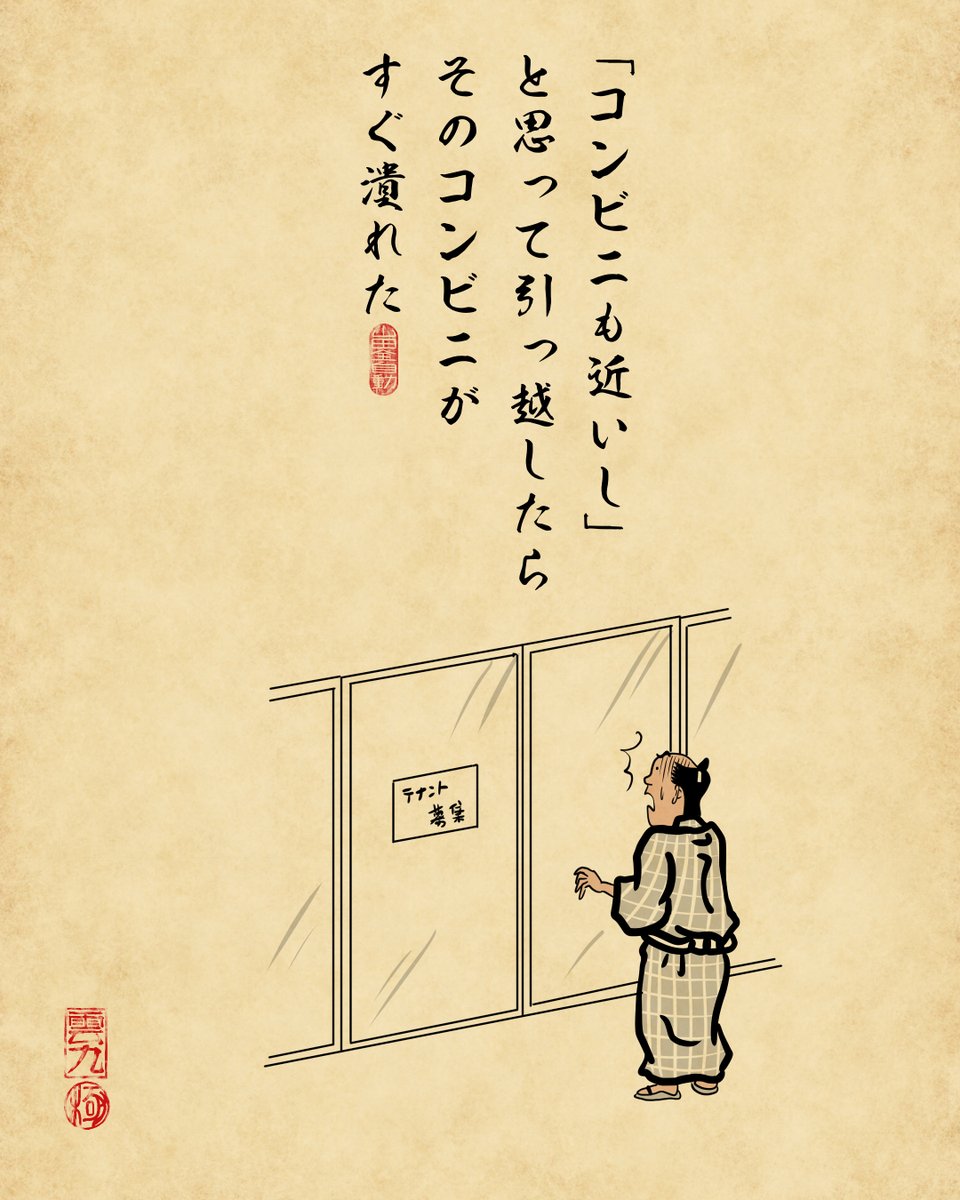 「コンビニも近いし」
と思って引っ越したら
そのコンビニが
すぐ潰れた
山田全自動
テナント
募集
雲丸
極